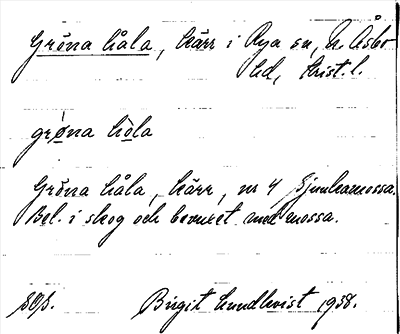 Gröna håla, kärr i Rya sn, N. Åsbo
hd, Krist. l.
grǿna hòla
Gröna håla, kärr, nr 4 Sjunkamossa.
Bel. i skog och bevuxet med mossa.
Birgit Lundkvist 1938.